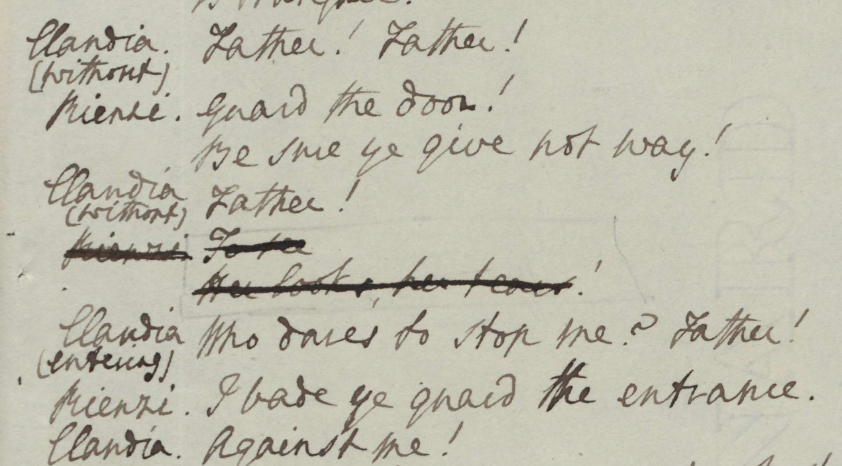 Claudia. Father! Father!
(without)
Rienzi. Guard the door!
Be sure ye give not way!
Claudia Father!
(without)
Rienzi To see
Her looks, her tears!
Claudia Who dares to stop me? Father!
(entering)
Rienzi. I bade ye guard the entrance.
Claudia. Against me!